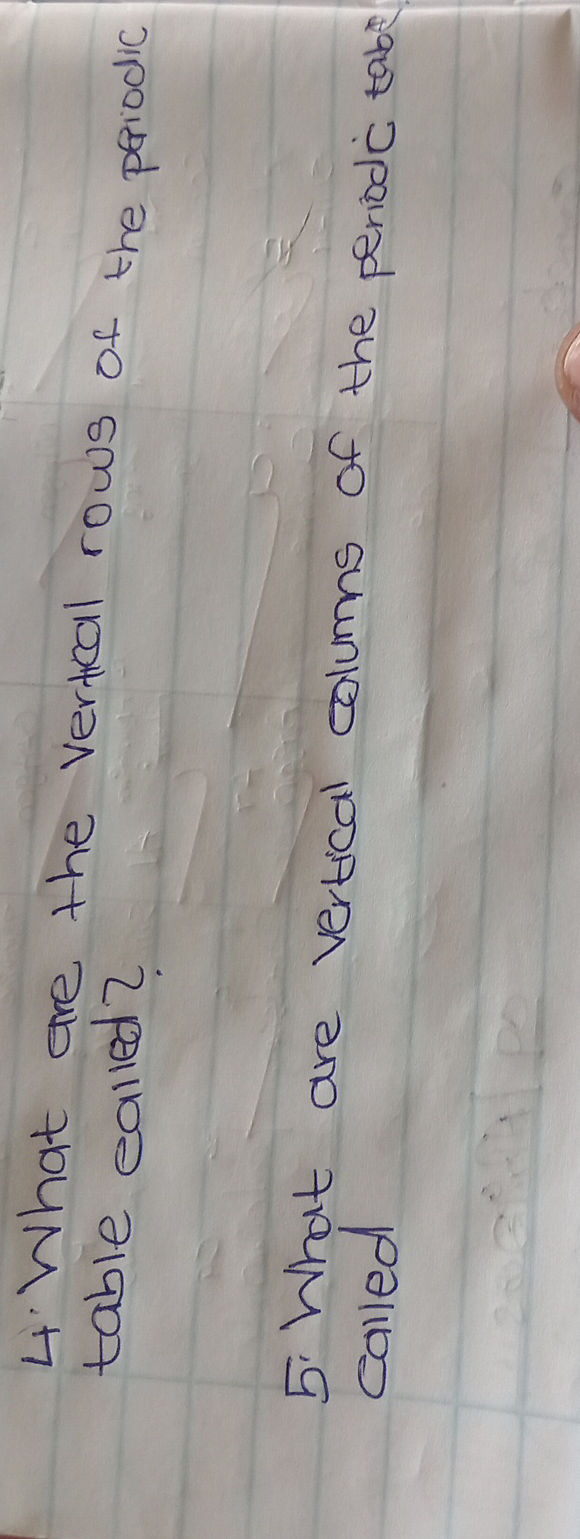 4. What are the vertical rows of the periodic
table called?
5. What are vertical columns of the periodic table
called